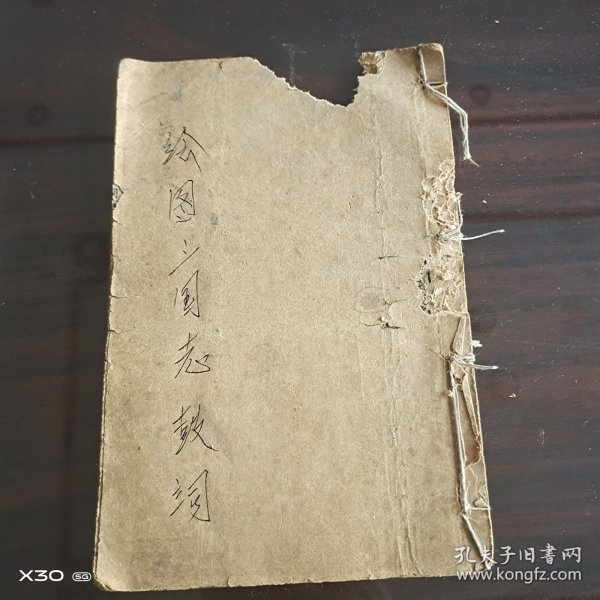 绘图三国志鼓词
X30 5G
孔夫子旧书网
www.kongfz.com